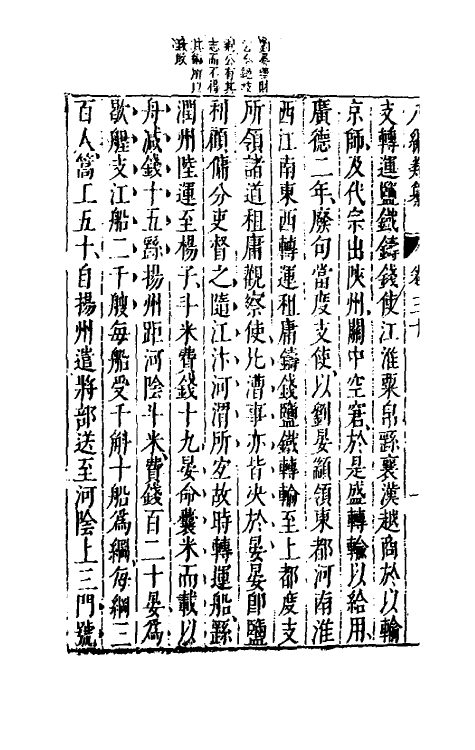 八編類集 卷三十
支轉運鹽鐵鑄錢使江淮粟帛繇襄漢越商於以輸
京師及代宗出陝州關中空窘於是盛轉輸以給用
廣德二年廢句當度支使以劉晏顓領東都河南淮
西江南東西轉運租庸鑄錢鹽鐵轉輸至上都度支
所領諸道租庸觀察使凡漕事亦皆決於晏晏即鹽
利顧傭分吏督之隨江汴河渭所宜故時轉運船繇
潤州陸運至楊子斗米費錢十九晏命囊米而載以
舟減錢十五繇揚州距河陰斗米費錢百二十晏為
歇艎支江船二千艘每船受千斛十船為綱每綱三
百人篙工五十自揚州遣將部送至河陰上三門號
志而不得
其術所以